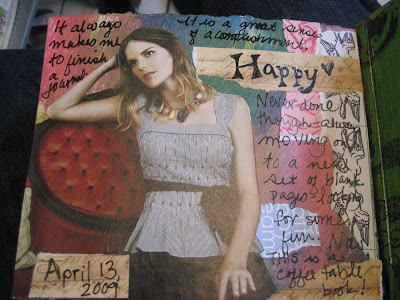 It always
makes me
to finish
a
journal.
It is a great sense
of accomplishment.
Happy
Never done
though - always
moving on
to a new
set of blank
pages - looking
for some
fun. No
This is a
coffee table
book!
eam
April 13,
2009